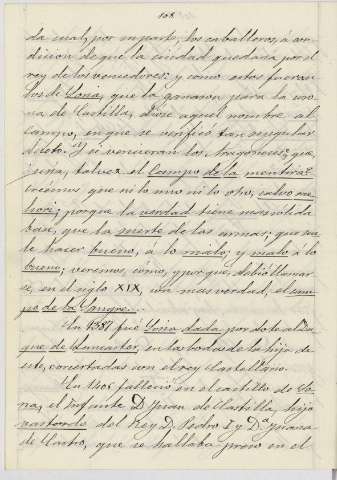 108
da cual, por su parte, dos caballeros, á con-
dicion de que la ciudad quedaria por el
rey de los vencedores: y como estos fueran
los de Soria, que la ganaron para la coro-
na de Castilla, diose aquel nombre al
campo, en que se verificó tan singular
duelo. Si vencieran los Aragoneses, que,
seria, talvez, el Campo de la mentira?
creemos que ni lo uno ni lo otro, salvo me-
liori; porque la verdad tiene mas sólida
base, que la suerte de las armas; que sue-
le hacer bueno, á lo malo, y malo á lo
bueno; veremos, cómo, y por qué, debió llamar-
se, en el siglo XIX, con mas verdad, el cam-
po de la Sangre.
En 1387 fué Soria dada, por dote al Du-
que de Lancaster, en las bodas de la hija de
este, concertadas con el rey Castellano.
En 1405 falleció en el castillo de So-
ria, el Infante D. Juan de Castilla, hijo
bastardo del Rey D. Pedro I y D.ª Juana
de Castro, que se hallaba preso en el